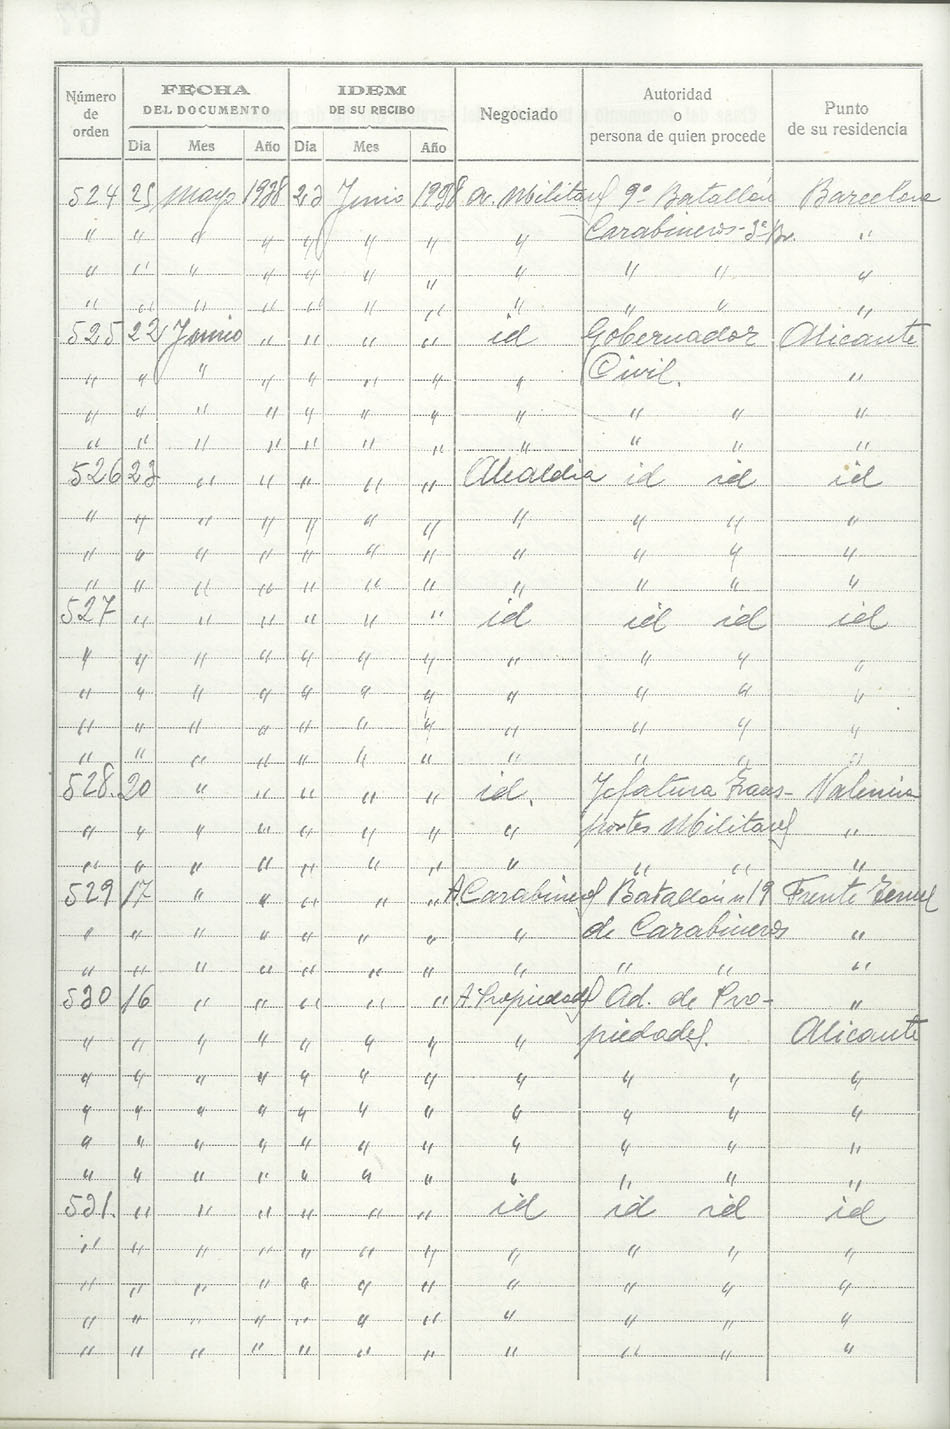 Número de orden | FECHA DEL DOCUMENTO | IDEM DE SU RECIBO | Negociado | Autoridad o persona de quien procede | Punto de su residencia
Dia | Mes | Año | Dia | Mes | Año
524 25 Mayo 1938 23 Junio 1938 A. Militares 9º Batallón Barcelona
" " " " " " " " Carabineros-3ª Br. "
" " " " " " " " " " "
" " " " " " " " " " "
525 22 Junio " " " " id Gobernador Alicante
" " " " " " " " Civil. "
" " " " " " " " " " "
" " " " " " " " " " "
526 23 " " " " " Alcaldia id id id
" " " " " " " " " " "
" " " " " " " " " " "
" " " " " " " " " " "
527 " " " " " " id id id id
" " " " " " " " " " "
" " " " " " " " " " "
" " " " " " " " " " "
" " " " " " " " " " "
528. 20 " " " " " id. Jefatura Trans- Valencia
" " " " " " " " portes Militares "
" " " " " " " " " " "
529 17 " " " " " A. Carabineros Batallón nº 19 Frente Teruel
" " " " " " " " de Carabineros "
" " " " " " " " " " "
530 16 " " " " " A. Propiedades Ad. de Pro- "
" " " " " " " " piedades. Alicante
" " " " " " " " " " "
" " " " " " " " " " "
" " " " " " " " " " "
" " " " " " " " " " "
531. " " " " " " id id id id
" " " " " " " " " " "
" " " " " " " " " " "
" " " " " " " " " " "
" " " " " " " " " " "